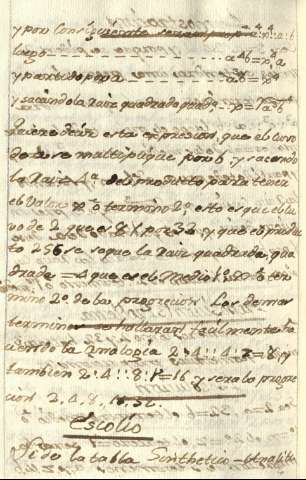 y por consiguiente
luego - - - a³b = p⁴
y partido por a
y sacando la raiz quadrado quada - p = 
Quiere decir esta expresion, que el cuvo
de a se multiplique por b y sacando
la Raiz 4ª del producto para tener
el Valor p ò termino 2º esto es que el cu-
vo de 2 que es 8 X por 32 y que el produc-
to 256 se saque la raiz quadrada qua
drada = 4 que es el Medio 1º ò ter
mino 2º de la progrecion Los demas
terminos se hallaran facilmente ha
ciendo la Analogia 2:4::4:r=8, y
tambien 2:4::8:r=16 y sera la progre
cion 2.4.8.16.32.
Escolio
Si de la tabla Sinthetico-Analiti